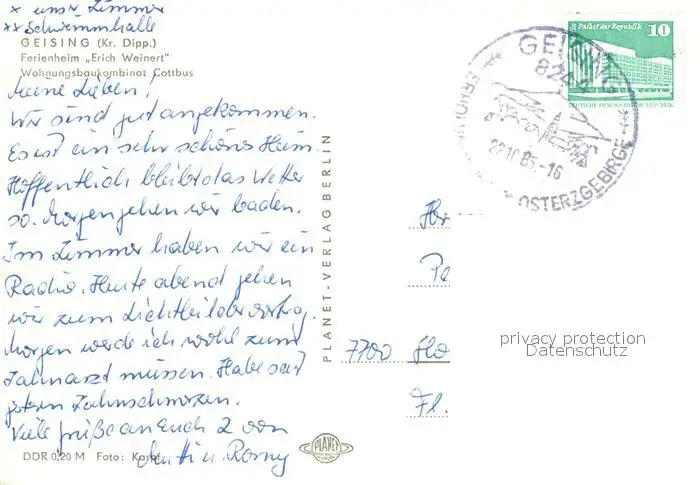 * unser Zimmer
** Schwimmhalle
GEISING (Kr. Dipp.)
Ferienheim „Erich Weinert"
Wohnungsbaukombinat Cottbus
Meine Lieben!
Wir sind gut angekommen.
Es ist ein sehr schönes Heim.
Hoffentlich bleibt das Wetter
so. Morgen gehen wir baden.
Im Zimmer haben wir ein
Radio. Heute abend gehen
wir zum Lichtbildervortrag.
Morgen werde ich wohl zum
Zahnarzt müssen. Habe seit
gestern Zahnschmerzen.
Viele Grüße an Euch 2 von
Mutti u. Romy
DDR 0,20 M Foto: Karpf
PLANET-VERLAG BERLIN
PLANET
Palast der Republik 10
DEUTSCHE DEMOKRATISCHE REPUBLIK
GEISING
824
22.10.85-16
OSTERZGEBIRGE
7700
Fl.
privacy protection
Datenschutz